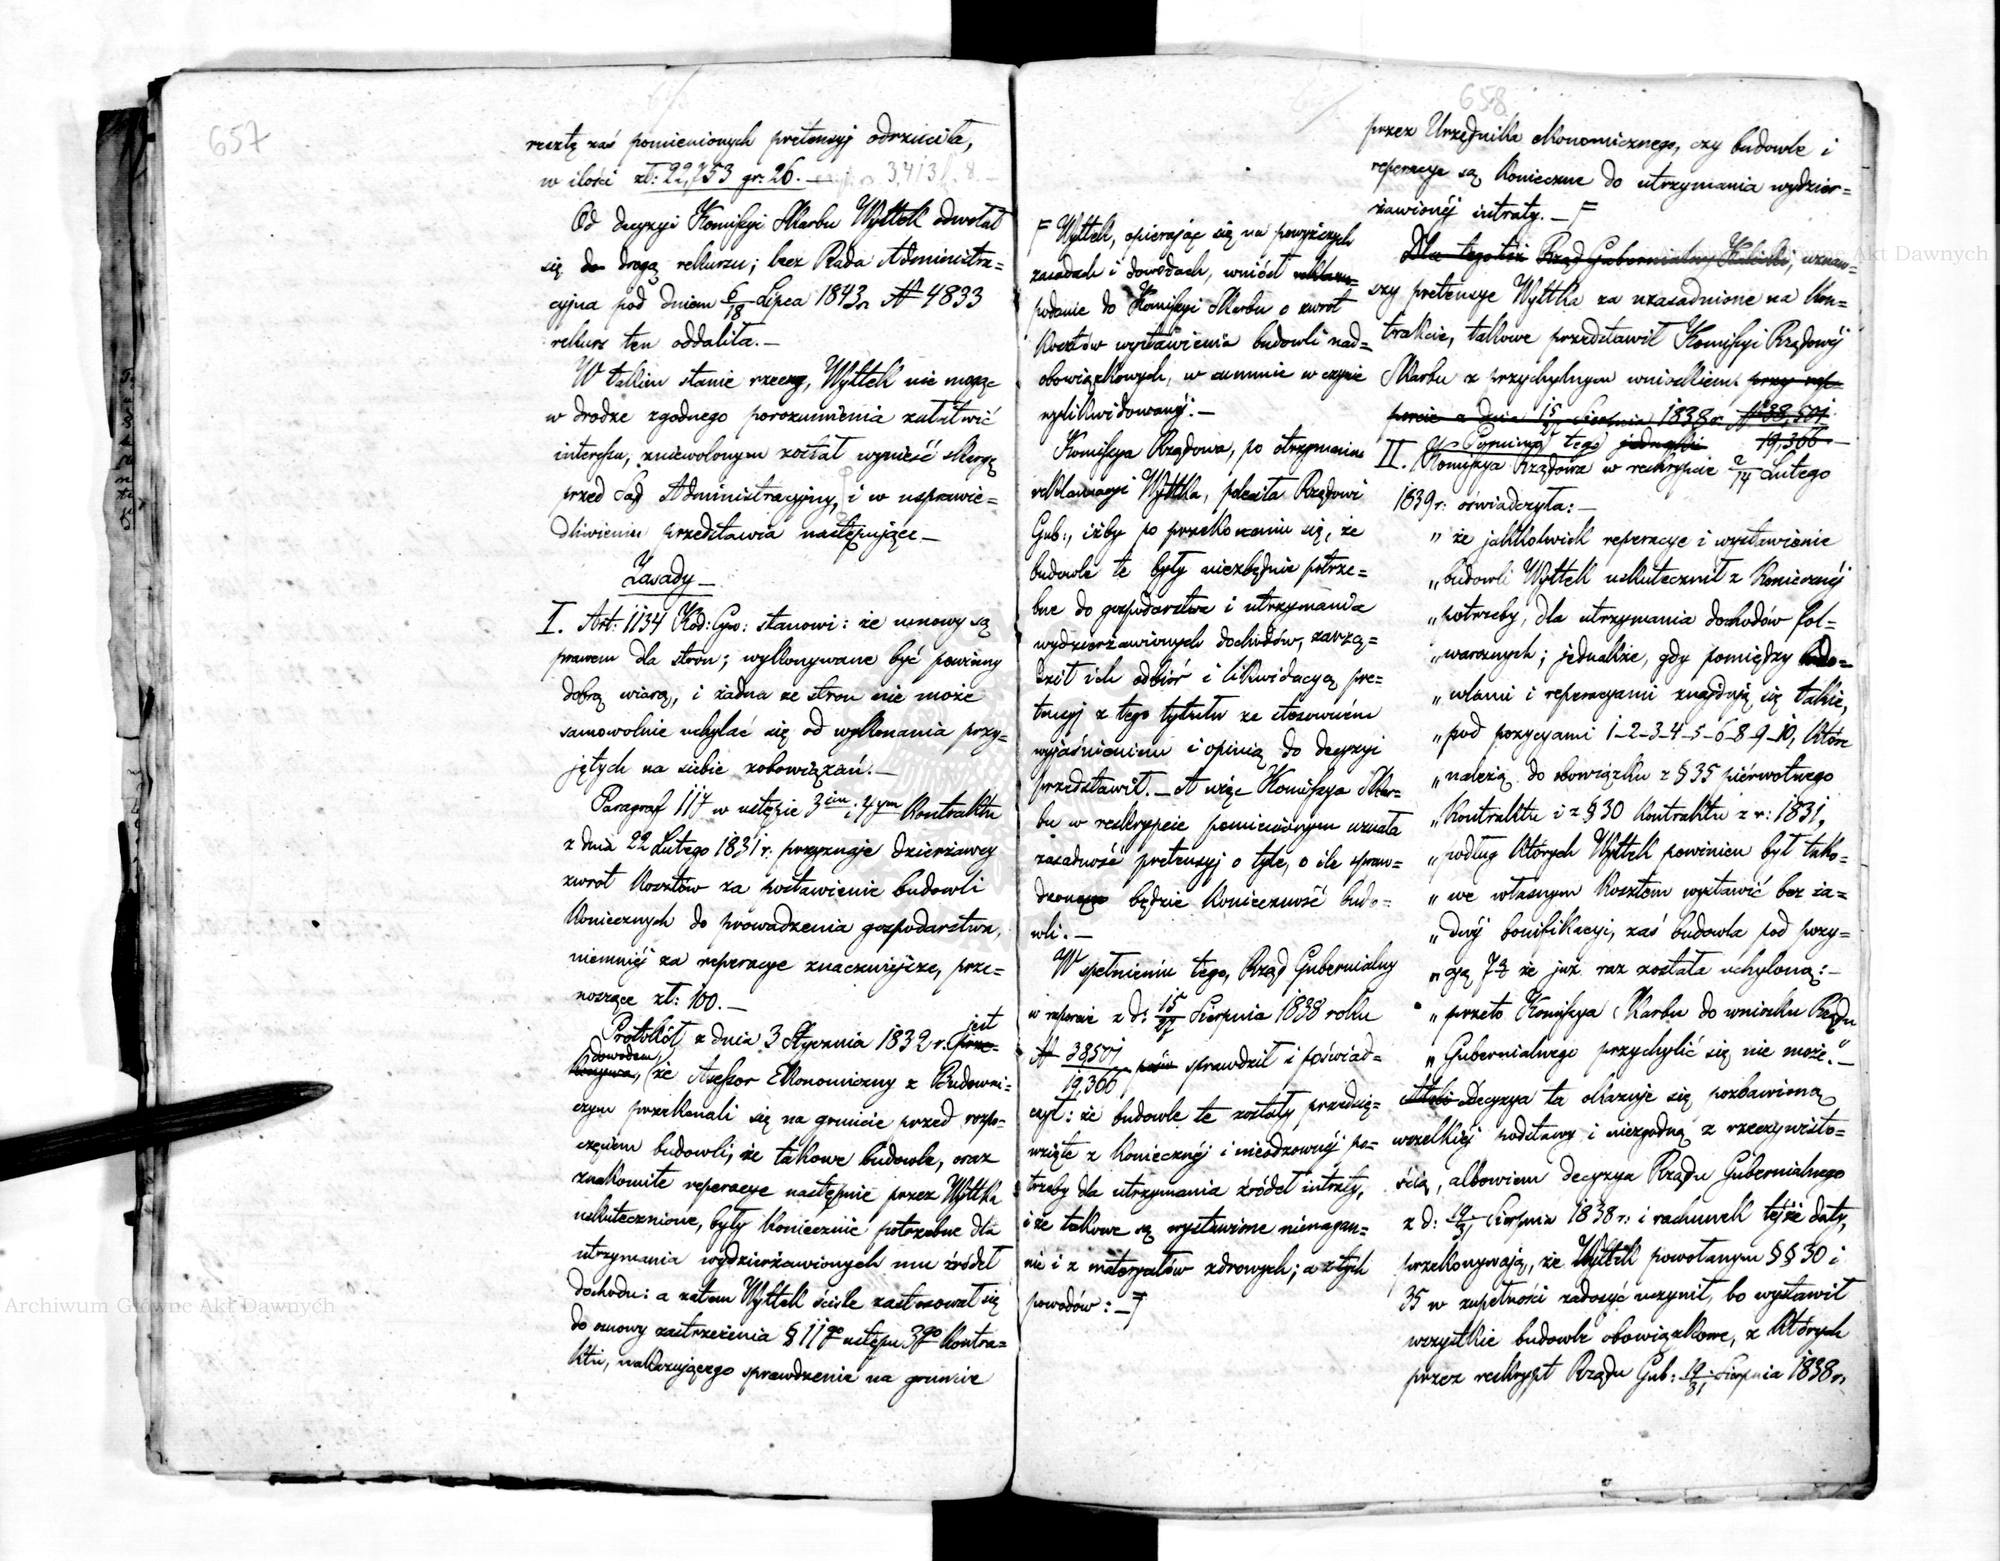 657
resztę zaś pomienionych pretensyj odrzuciła,
w ilości zł: 22,753 gr: 26. — 3,413 8. —
Od decyzyi Komisyi Skarbu Wyttek odwołał
się do drogą rekursu; lecz Rada Administra=
cyjna pod dniem 6/18 Lipca 1843 r. N 4833
rekurs ten oddaliła. —
W takim stanie rzeczy, Wyttek nie mogąc
w drodze zgodnego porozumienia załatwić
interesu, zniewolonym został wynieść skargę
przed Sąd Administracyjny, i w usprawie=
dliwieniu przedstawia następujące —
Zasady —
I. Art: 1134 Kod: Cyw: stanowi: że umowy są
prawem dla stron; wykonywane być powinny
dobrą wiarą, i żadna ze stron nie może
samowolnie uchylać się od wykonania przy=
jętych na siebie zobowiązań. —
Paragraf 11y w ustępie 3cim i 4ym Kontraktu
z dnia 22 Lutego 1831 r. przyznaje dzierżawcy
zwrot kosztów za postawienie budowli
koniecznych do prowadzenia gospodarstwa,
niemniéj za reperacye znaczniejsze, prze=
noszące zł: 100. —
jest
Protokół z dnia 3 Stycznia 1832 r. prze=
dowodem,
konywa, że Assesor Ekonomiczny z Budowni=
czym przekonali się na gruncie przed rozpo=
częciem budowli, że takowe budowle, oraz
znakomite reperacye następnie przez Wyttka
uskutecznione, były koniecznie potrzebne dla
utrzymania wydzierżawionych mu źródeł
dochodu: a zatem Wyttek ściśle zastosował się
do osnowy zastrzeżenia § 11go ustępu 3go Kontra=
ktu, nakazującego sprawdzenie na gruncie
658
przez Urzędnika ekonomicznego, czy budowle i
reperacye są konieczne do utrzymania wydzier=
żawionéj intraty. — F
F Wyttek, opierając się na powyższych
zasadach i dowodach, wniósł reklama=
podanie do Komisyi Skarbu o zwrot
kosztów wystawienia budowli nad=
obowiązkowych, w summie w czynie
wylikwidowanéj. —
Komisya Rządowa, po otrzymaniu
reklamacyi Wyttka, poleciła Rządowi
Gub:, iżby po przekonaniu się, że
budowle te były niezbędnie potrze=
bne do gospodarstwa i utrzymania
wydzierżawionych dochodów, zarzą=
dził ich odbiór i likwidacyą pre=
tensyj z tego tytułu ze stosowném
wyjaśnieniem i opinią do decyzyi
przedstawił. — A więc Komisya Skar=
bu w reskrypcie pomienionym uznała
zasadność pretensyj o tyle, o ile spraw=
dzoną będzie konieczność budo=
wli. —
W spełnieniu tego, Rząd Gubernialny
w raporcie z d: 15/27 Sierpnia 1838 roku
N 38501/19,366 sprawdził i poświad=
czył: że budowle te zostały przedsię=
wzięte z koniecznéj i nieodzownéj po=
trzeby dla utrzymania źródeł intraty,
i że takowe są wystawione nienagan=
nie i z materyałów zdrowych; a z tych
powodów: — F
Dla tego też Rząd Gubernialny Kaliski, uznaw=
szy pretensye Wyttka za uzasadnione na kon=
trakcie, takowe przedstawił Komisyi Rządowéj
Skarbu z przychylnym wnioskiem, przy ra=
porcie z dnia 15/27 Sierpnia 1838 r. N 38,501/19,366 —
Pomimo tego jednakże
II. Komisya Rządowa w reskrypcie 2/14 Lutego
1839 r. oświadczyła: —
„ że jakkolwiek reperacye i wystawienie
„ budowli Wyttek uskutecznił z koniecznéj
„ potrzeby, dla utrzymania dochodów fol=
„ warcznych; jednakże, gdy pomiędzy budo=
„ wlami i reperacyami znajdują się takie,
„ pod pozycyami 1_2_3_4_5_6_8_9_10, które
„ należą do obowiązku z § 35 piérwotnego
„ Kontraktu i z § 30 Kontraktu z r: 1831,
„ podług których Wyttek powinien był tako=
„ we własnym kosztem wystawić bez ża=
„ dnéj bonifikacyi, zaś budowla pod pozy=
„ cyą 7ą że już raz została uchyloną: —
„ przeto Komisya Skarbu do wniosku Rządu
„ Gubernialnego przychylić się nie może." —
Atoli Decyzya ta okazuje się pozbawioną
wszelkiéj podstawy i niezgodną z rzeczywisto=
ścią, albowiem decyzya Rządu Gubernialnego
z d: 19/31 Sierpnia 1838 r: i rachunek téjże daty,
przekonywają, że Wyttek powołanym §§ 30 i
35 w zupełności zadosyć uczynił, bo wystawił
wszystkie budowle obowiązkowe, z których
przez reskrypt Rządu Gub: 19/31 Sierpnia 1838 r.
Archiwum Główne Akt Dawnych
Archiwum Główne Akt Dawnych